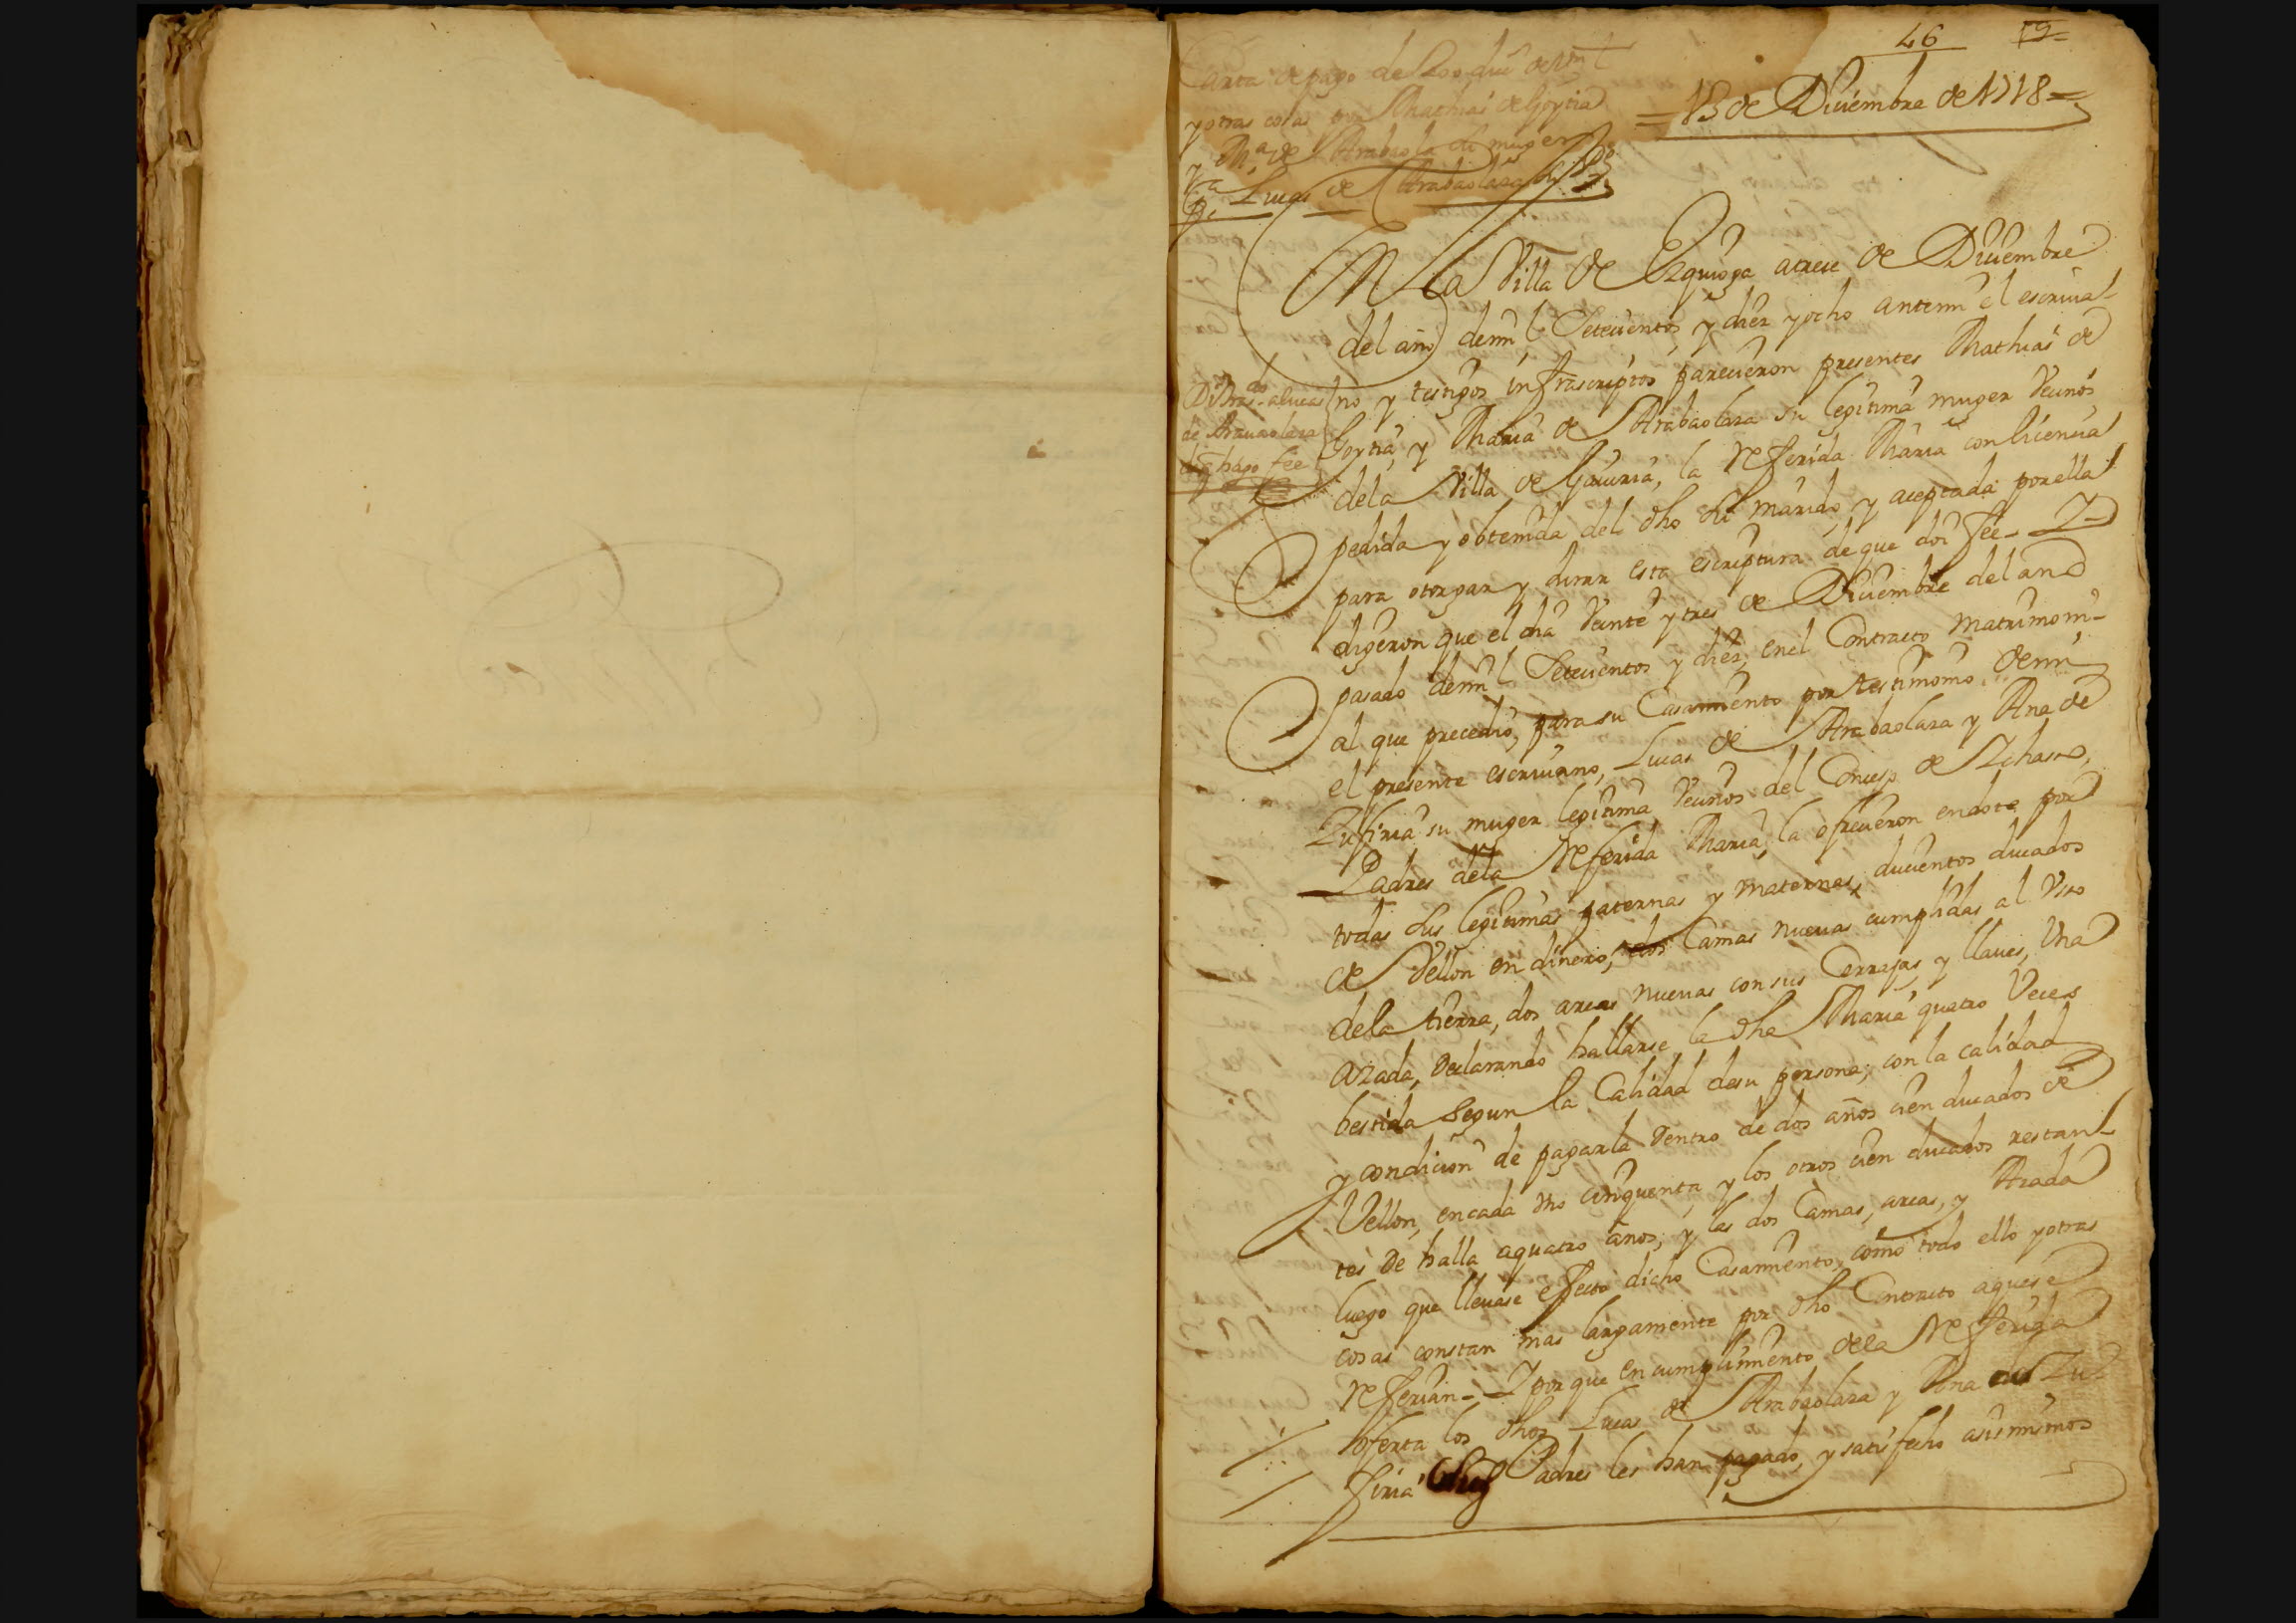 46 19
Carta de pago de 200 du.s de vn
y otras cosas por Mathias de Goytia
y M.a de Arabaolaza su muger
p.a Lucas de Arabaolaza su P.e
= 13 de Diciembre de 1718 =
En La Villa de Ezquioga a trece de Diciembre
del año demil Setecientos y diez y ocho antemi el escriua-
no y testigos infrascriptos parecieron presentes Mathias de
Goytia, y Maria de Arabaolaza su legitima muger Vecinos
dela Villa de Gauiria, la Referida Maria con licencia
pedida y obtenida del dho su marido y aceptada por ella
para otorgar y Jurar esta escriptura de que doi fee - Y
digeron que el dia Veinte y tres de Diciembre del año
pasado demil Setecientos y diez, enel Contracto matrimoni-
al que precedio, para su Casamiento por testimonio demi
el presente escriuano, Lucas de Arabaolaza y Ana de
Zufiria su muger legitima Vecinos del Concejo de Ichaso,
Padres dela Referida Maria, la ofrecieron endote por
todas sus legitimas paternas y maternas, ducientos ducados
de Vellon en dinero, dos Camas nueuas cumplidas al Vso
dela tierra, dos arcas nueuas con sus Cerrajas y llaues, Vna
Azada, Declarando hallarse la dha Maria quatro Veces
bestida Segun la Calidad desu persona; con la calidad
y condicion de pagarla Dentro de dos años cien ducados de
Vellon, encada Vno cinquenta, y los otros cien ducados restan-
tes De halla aquatro años; y las dos Camas, arcas, y Azada
luego que lleuase efecto dicho Casamiento, como todo ello y otras
cosas constan mas largamente por dho Contracto aquese
Referian - Y por que en cumplimiento dela Referida
oferta los dhos Lucas de Arabaolaza y Ana de Zu-
firia Padres les han pagado, y satisfecho asimismos
Di tras.do a Lucas
de Arauaolaza
de q hago fee